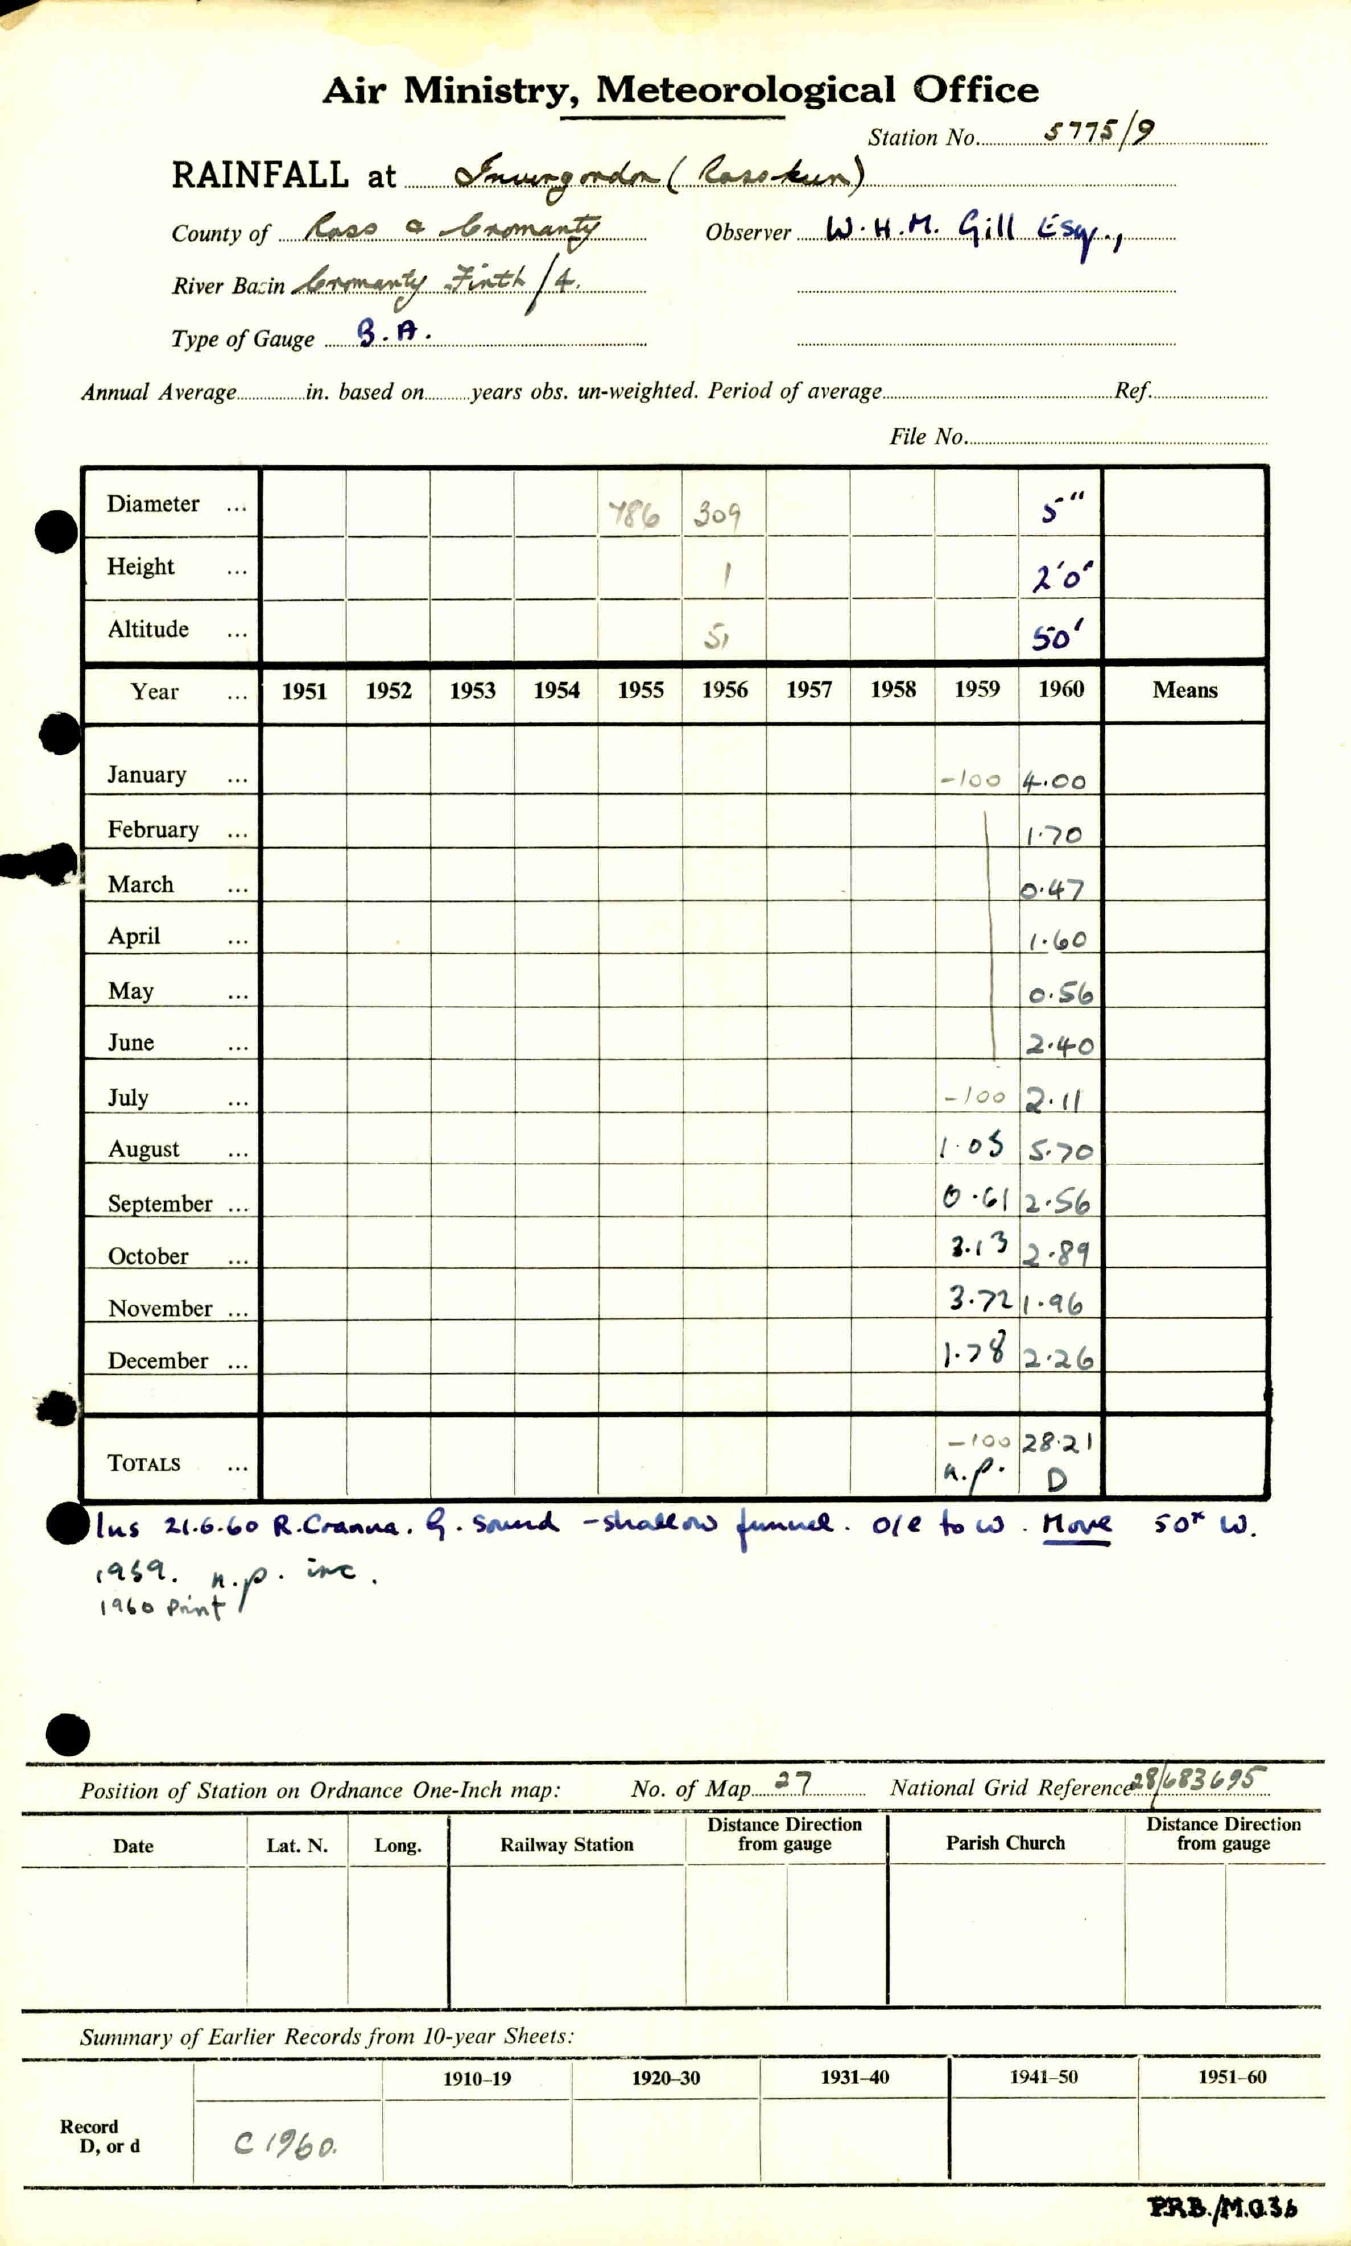 Air Ministry, Meteorological Office
Station No. 5775/9
RAINFALL at Invergordon (Rosskeen)
County of Ross & Cromarty Observer W.H.M. Gill Esq.,
River Basin Cromarty Firth /4.
Type of Gauge B.A.
Annual Average in. based on years obs. un-weighted. Period of average Ref.
File No.
Diameter ... 786 309 5"
Height ... 1 2'0"
Altitude ... 51 50'
Year ... 1951 1952 1953 1954 1955 1956 1957 1958 1959 1960 Means
January ... -100 4.00
February ... 1.70
March ... 0.47
April ... 1.60
May ... 0.56
June ... 2.40
July ... -100 2.11
August ... 1.05 5.70
September ... 0.61 2.56
October ... 3.13 2.89
November ... 3.72 1.96
December ... 1.78 2.26
TOTALS ... -100 28.21
n.p. D
Ins 21.6.60 R.Cranna. G. Sound - shallow funnel. O/e to W. Move 50x W.
1959. n.p. inc.
1960 Print
Position of Station on Ordnance One-Inch map: No. of Map 27 National Grid Reference 28/683695
Date Lat. N. Long. Railway Station Distance Direction from gauge Parish Church Distance Direction from gauge
Summary of Earlier Records from 10-year Sheets:
1910–19 1920–30 1931–40 1941–50 1951–60
Record
D, or d C 1960.
P.R.B./M.O.36